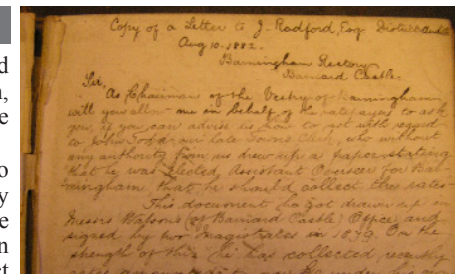 Copy of a Letter to J. Radford, Esq District Auditor
Aug 10. 1882.
Barningham Rectory
Barnard Castle.
Sir,
As Chairman of the Vestry of Barningham
will you allow me in behalf of the rate payers to ask
you, if you can advise us how to act with regard
to John Todd our late Town's Clerk, who without
any authority from us drew up a paper, stating
that he was Elected, Assistant Overseer for Bar-
ningham, that he should collect the rates-
This document he got drawn up in
Messrs Watsons (of Barnard Castle) Office, and
signed by two Magistrates in 1879. On the
strength of this he has collected
d
n,
e
o
y
e
n
ct